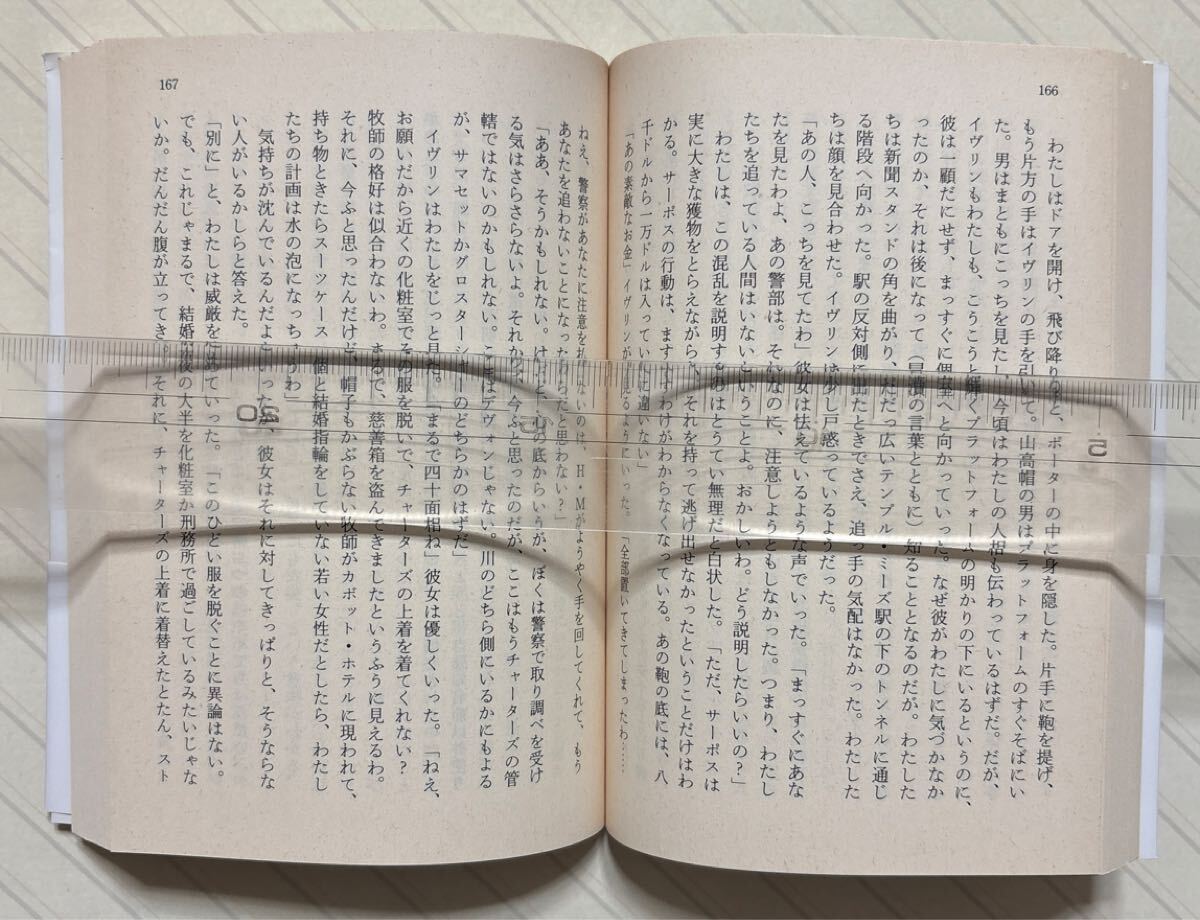 166
わたしはドアを開け、飛び降りると、ポーターの中に身を隠した。片手に鞄を提げ、
もう片方の手はイヴリンの手を引いて。山高帽の男はプラットフォームのすぐそばにい
た。男はまともにこっちを見たし、今頃はわたしの人相も伝わっているはずだ。だが、
イヴリンもわたしも、こうこうと輝くプラットフォームの明かりの下にいるというのに、
彼は一顧だにせず、まっすぐに個室へと向かっていった。なぜ彼がわたしに気づかなか
ったのか、それは後になって（早濤の言葉とともに）知ることとなるのだが。わたした
ちは新聞スタンドの角を曲がり、だだっ広いテンプル・ミーズ駅の下のトンネルに通じ
る階段へ向かった。駅の反対側に出たときでさえ、追っ手の気配はなかった。わたした
ちは顔を見合わせた。イヴリンは少し戸惑っているようだった。
「あの人、こっちを見てたわ」彼女は怯えているような声でいった。「まっすぐにあな
たを見たわよ、あの警部は。それなのに、注意しようともしなかった。つまり、わたし
たちを追っている人間はいないということよ。おかしいわ。どう説明したらいいの？」
わたしは、この混乱を説明するのはとうてい無理だと白状した。「ただ、サーポスは
実に大きな獲物をとらえながら、それを持って逃げ出せなかったということだけはわ
かる。サーポスの行動は、ますますわけがわからなくなっている。あの鞄の底には、八
千ドルから一万ドルは入っていたに違いない」
「あの素敵なお金」イヴリンが 見るようにいった。「全部置いてきてしまったわ……
167
ねえ、警察があなたに注意を払わないのは、H・Mがようやく手を回してくれて、もう
あなたを追わないことになったからだと思わない？」
「ああ、そうかもしれない。けれど、心の底からいうが、ぼくは警察で取り調べを受け
る気はさらさらないよ。それから、今ふと思ったのだが、ここはもうチャーターズの管
轄ではないのかもしれない。ここはデヴォンじゃない。川のどちら側にいるかにもよる
が、サマセットかグロスターシャーのどちらかのはずだ」
イヴリンはわたしをじっと見た。「まるで四十面相ね」彼女は優しくいった。「ねえ、
お願いだから近くの化粧室でその服を脱いで、チャーターズの上着を着てくれない？
牧師の格好は似合わないわ。まるで、慈善箱を盗んできましたというふうに見えるわ。
それに、今ふと思ったんだけど、帽子もかぶらない牧師がカボット・ホテルに現われて、
持ち物ときたらスーツケース一個と結婚指輪をしていない若い女性だとしたら、わたし
たちの計画は水の泡になっちゃうわ」
気持ちが沈んでいるんだよといったが、彼女はそれに対してきっぱりと、そうならな
い人がいるかしらと答えた。
「別に」と、わたしは威厳を込めていった。「このひどい服を脱ぐことに異論はない。
でも、これじゃまるで、結婚前後の大半を化粧室か刑務所で過ごしているみたいじゃな
いか。だんだん腹が立ってき 。それに、チャーターズの上着に着替えたとたん、スト
20
5